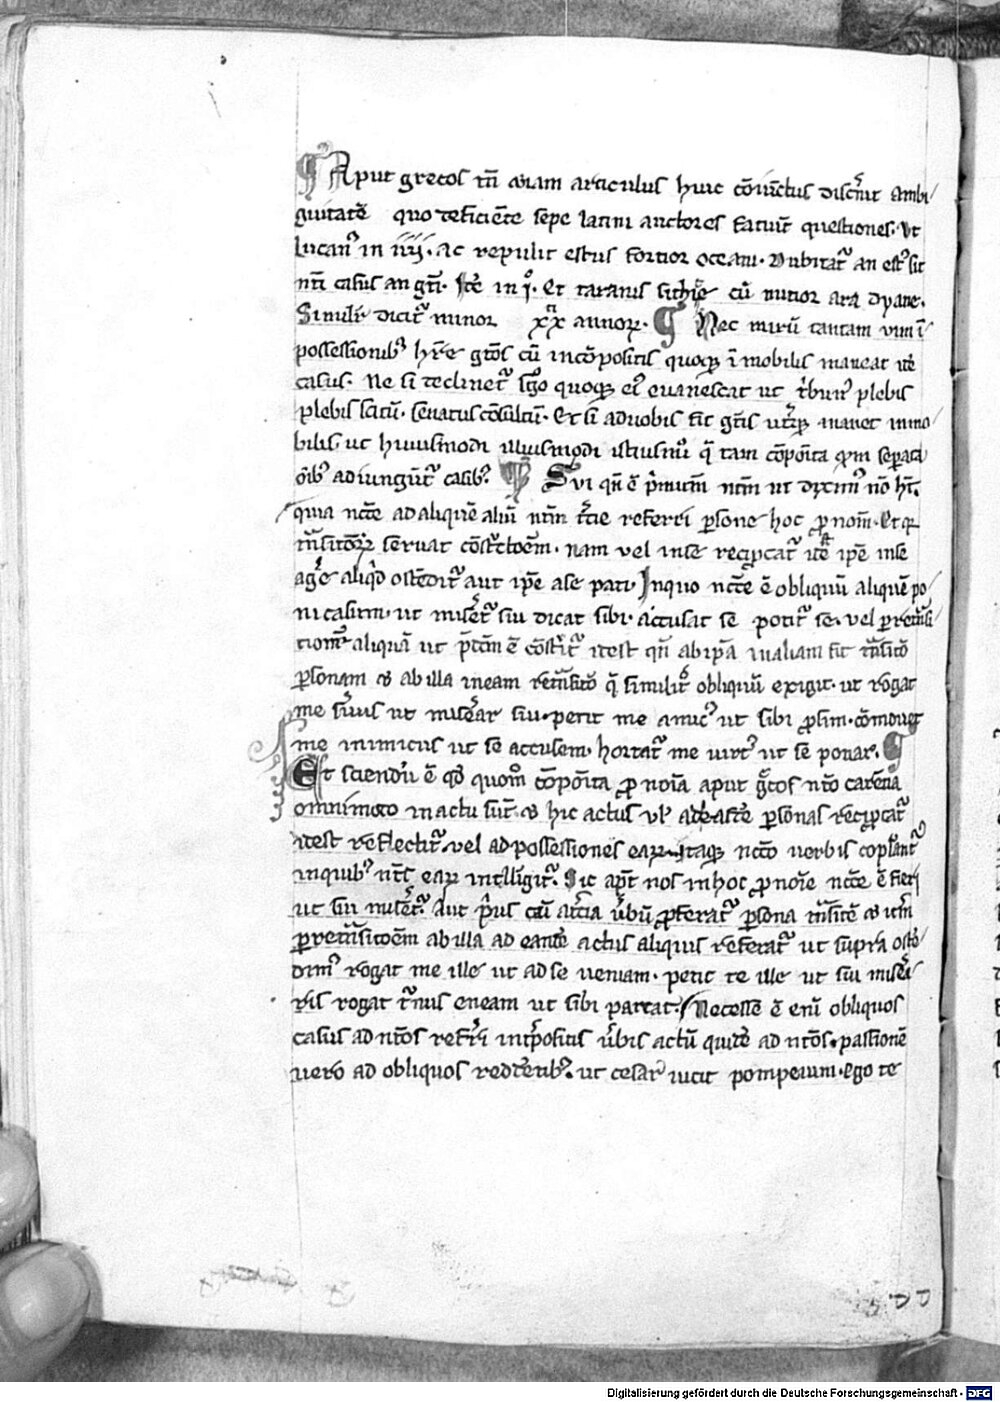 ¶ Aput grecos tn̄ etiam articulus huic cōiūctus discˀnit ambi/
guitatē quo deficiēte sepe latini auctores faciūt questiones. ut
lucanꝰ in iiii. Ac repulit estus fortior oceani. Dubitatˀ an estꝰ sit
nt̄i casus an gt̄i. Itē in i°. Et taranis sithie cū mitior ara dyane.
Similiˀ dicitˀ minor xx annoꝝ. ¶ Nec mirū tantam uim ī
possessionibꝰ hr̄e gtōs cū incōpositis quoqꝫ īmobilis maneat iste
casus. Ne si declinetˀ sgō quoqꝫ eiꝰ euanescat ut tˀbunꝰ plebis
plebis scitū. senatus cōsultū. Et si aduobis fit gt̄is utˀqꝫ manet immo/
bilis. ut huiusmodi illiusmodi istiusmōi q̄ tam cōpoīta qm̄ sepata
oībꝰ adiungūtˀ casibꝰ. ¶ Sui qn̄ ē pˀmum ntm̄ ut diximꝰ nō ht̄.
quia nc̄cē ad aliquē aliū ntm̄ tˀcie referri ꝑsone hoc ꝓnom̄. Et qꝫ
tˀnsitoꝝ seruat cōstˀctoēm. nam uel in se recipcatˀ id ē ip̄e in se
agˀe aliqˀd ostēditˀ aut ip̄e a se pati. In quo nc̄cē ē obliquū aliquē po/
ni casum. ut misˀetˀ sui dicat sibi. accusat se potitˀ se. uel ꝑ retˀnsi
tionē aliquā ut p̄dc̄m ē cōstˀitˀ idest qn̄ ab ip̄a in aliam fit tˀnsitō
ꝑsonam et ab illa in eam retˀnsitō q̄ similitˀ obliquū exigit. ut rogat
me seruus ut miserear sui. petit me amicꝰ ut sibi ꝓsim. cōmouet
me inimicus ut se accusem. hortatˀ me uirtꝰ ut se ponar. ¶
Et sciendū ē qd̄ quom̄ cōpoīta ꝓnoīa aput gˀcos ntō carētia
omnimodo in actu sūt et hic actus ul̓ ad easdē ꝑsonas recipcatˀ
idest reflectitˀ. uel ad possessiones eaꝝ. Itaqꝫ nccō uerbis copl̓antˀ
in quibꝰ nt̄s eaꝝ intelligitˀ. Sic apt̄ nos in hoc ꝓnoīe nccē ē fieri
ut sui misˀetˀ. Aut pˀus cū alia uˀbū ꝓferatˀ ꝑsona tˀnsitē et itˀm
ꝑ retˀnsitoēm ab illa ad eandē actus aliquis referatˀ ut supra ostē/
dimꝰ rogat me ille ut ad se ueniam. petit te ille ut sui misˀe
ris rogat tˀnus eneam ut sibi parcat. Necesse ē enī obliquos
casus ad ntōs refˀri intˀpositis uˀbis actū quidē ad ntōs. passionē
uero ad obliquos reddētibꝰ. ut cesar uicit pompeium. ego te
Digitalisierung gefördert durch die Deutsche Forschungsgemeinschaft - DFG